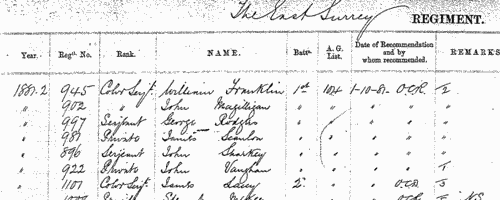 The East Surrey REGIMENT.
Year. Regtl. No. Rank. NAME. Battn. A. G. List. Date of Recommendation and by whom recommended. REMARKS
1881-2 945 Color Serjt. William Franklin 1st 104 1-10-81 O.C.R. 2
" 902 " John Magilligan " " " " "
" 997 Serjeant George Rodgers " " " " "
" 987 Private James Scanlon " " " " "
" 896 Serjeant John Sharkey " " " " "
" 922 Private John Vaughan " " " " 1
" 1101 Color Serjt. James Lacey 2 " " O.C.R. 3